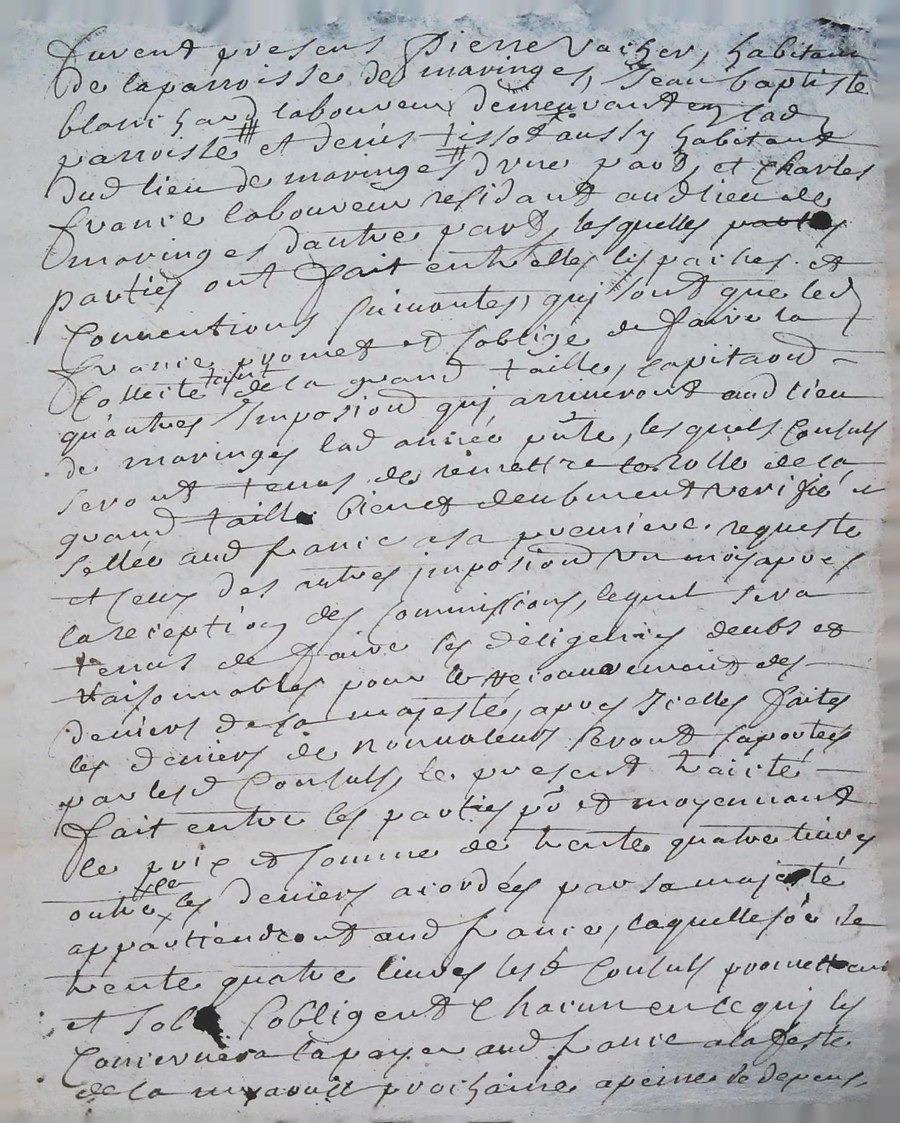 furent presens Pierre vacher, habitant
de laparroisse de maringes, Jean baptiste
blanchard laboureur demeurant en lad
parroisse et denis tissot aussy habitant
dud lieu de maringes dune part, et Charles
france laboureur residant aud lieu de
maringes dautre part, lesquelles parties
parties ont fait entre elles les paches et
Conventions suivantes, quj sont que led
france promet et soblige de faire la
Collecte tant de la grand taille, capitaon
quautres Imposiond quj arriveront aud lieu
de maringes lad année pnte, lesquels Consuls
seront tenus de remettre le rolle de la
grand taille bien et deubment verifié et
sellée aud france a sa premiere requeste
et ceux des autres jmposiond un mois apres
la reception des Commissions, lequel sera
tenus de faire les deligences deubs et
raisonnables pour le recouvrement des
deniers de sa majesté, apres Icelles faites
les deniers de nonvaleurs seront suportes
par lesd Consuls, le present traicté
fait entre les parties pnt et moyennant
le prix et somme de trente quatre livres
outre les deniers acordées par sa majesté
appartiendront aud france, laquelle soe de
trente quatre livres lesd Consuls promettent
et sob sobligent Chacun en ce quj les
Concernera la payer aud france a la feste
de la myaoust prochaine a peine de depens,